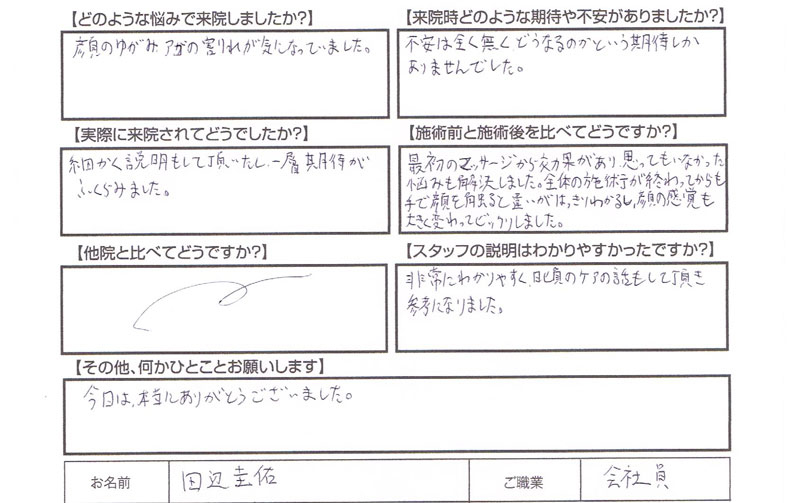 【どのような悩みで来院しましたか?】
顔のゆがみ、アゴの割れが気になっていました。
【来院時どのような期待や不安がありましたか?】
不安は全く無く どうなるのかという期待しか
ありませんでした。
【実際に来院されてどうでしたか?】
細かく説明もして頂いたし、一層期待が
ふくらみました。
【施術前と施術後を比べてどうですか?】
最初のマッサージから効果があり、思ってもいなかった
悩みも解決しました。全体の施術が終わってからも
手で顔を触ると違いがはっきりわかるし、顔の感覚も
大きく変わってビックリしました。
【他院と比べてどうですか?】
【スタッフの説明はわかりやすかったですか?】
非常にわかりやすく、日頃のケアの話もして頂き
参考になりました。
【その他、何かひとことお願いします】
今日は、本当にありがとうございました。
お名前 田辺圭佑 ご職業 会社員